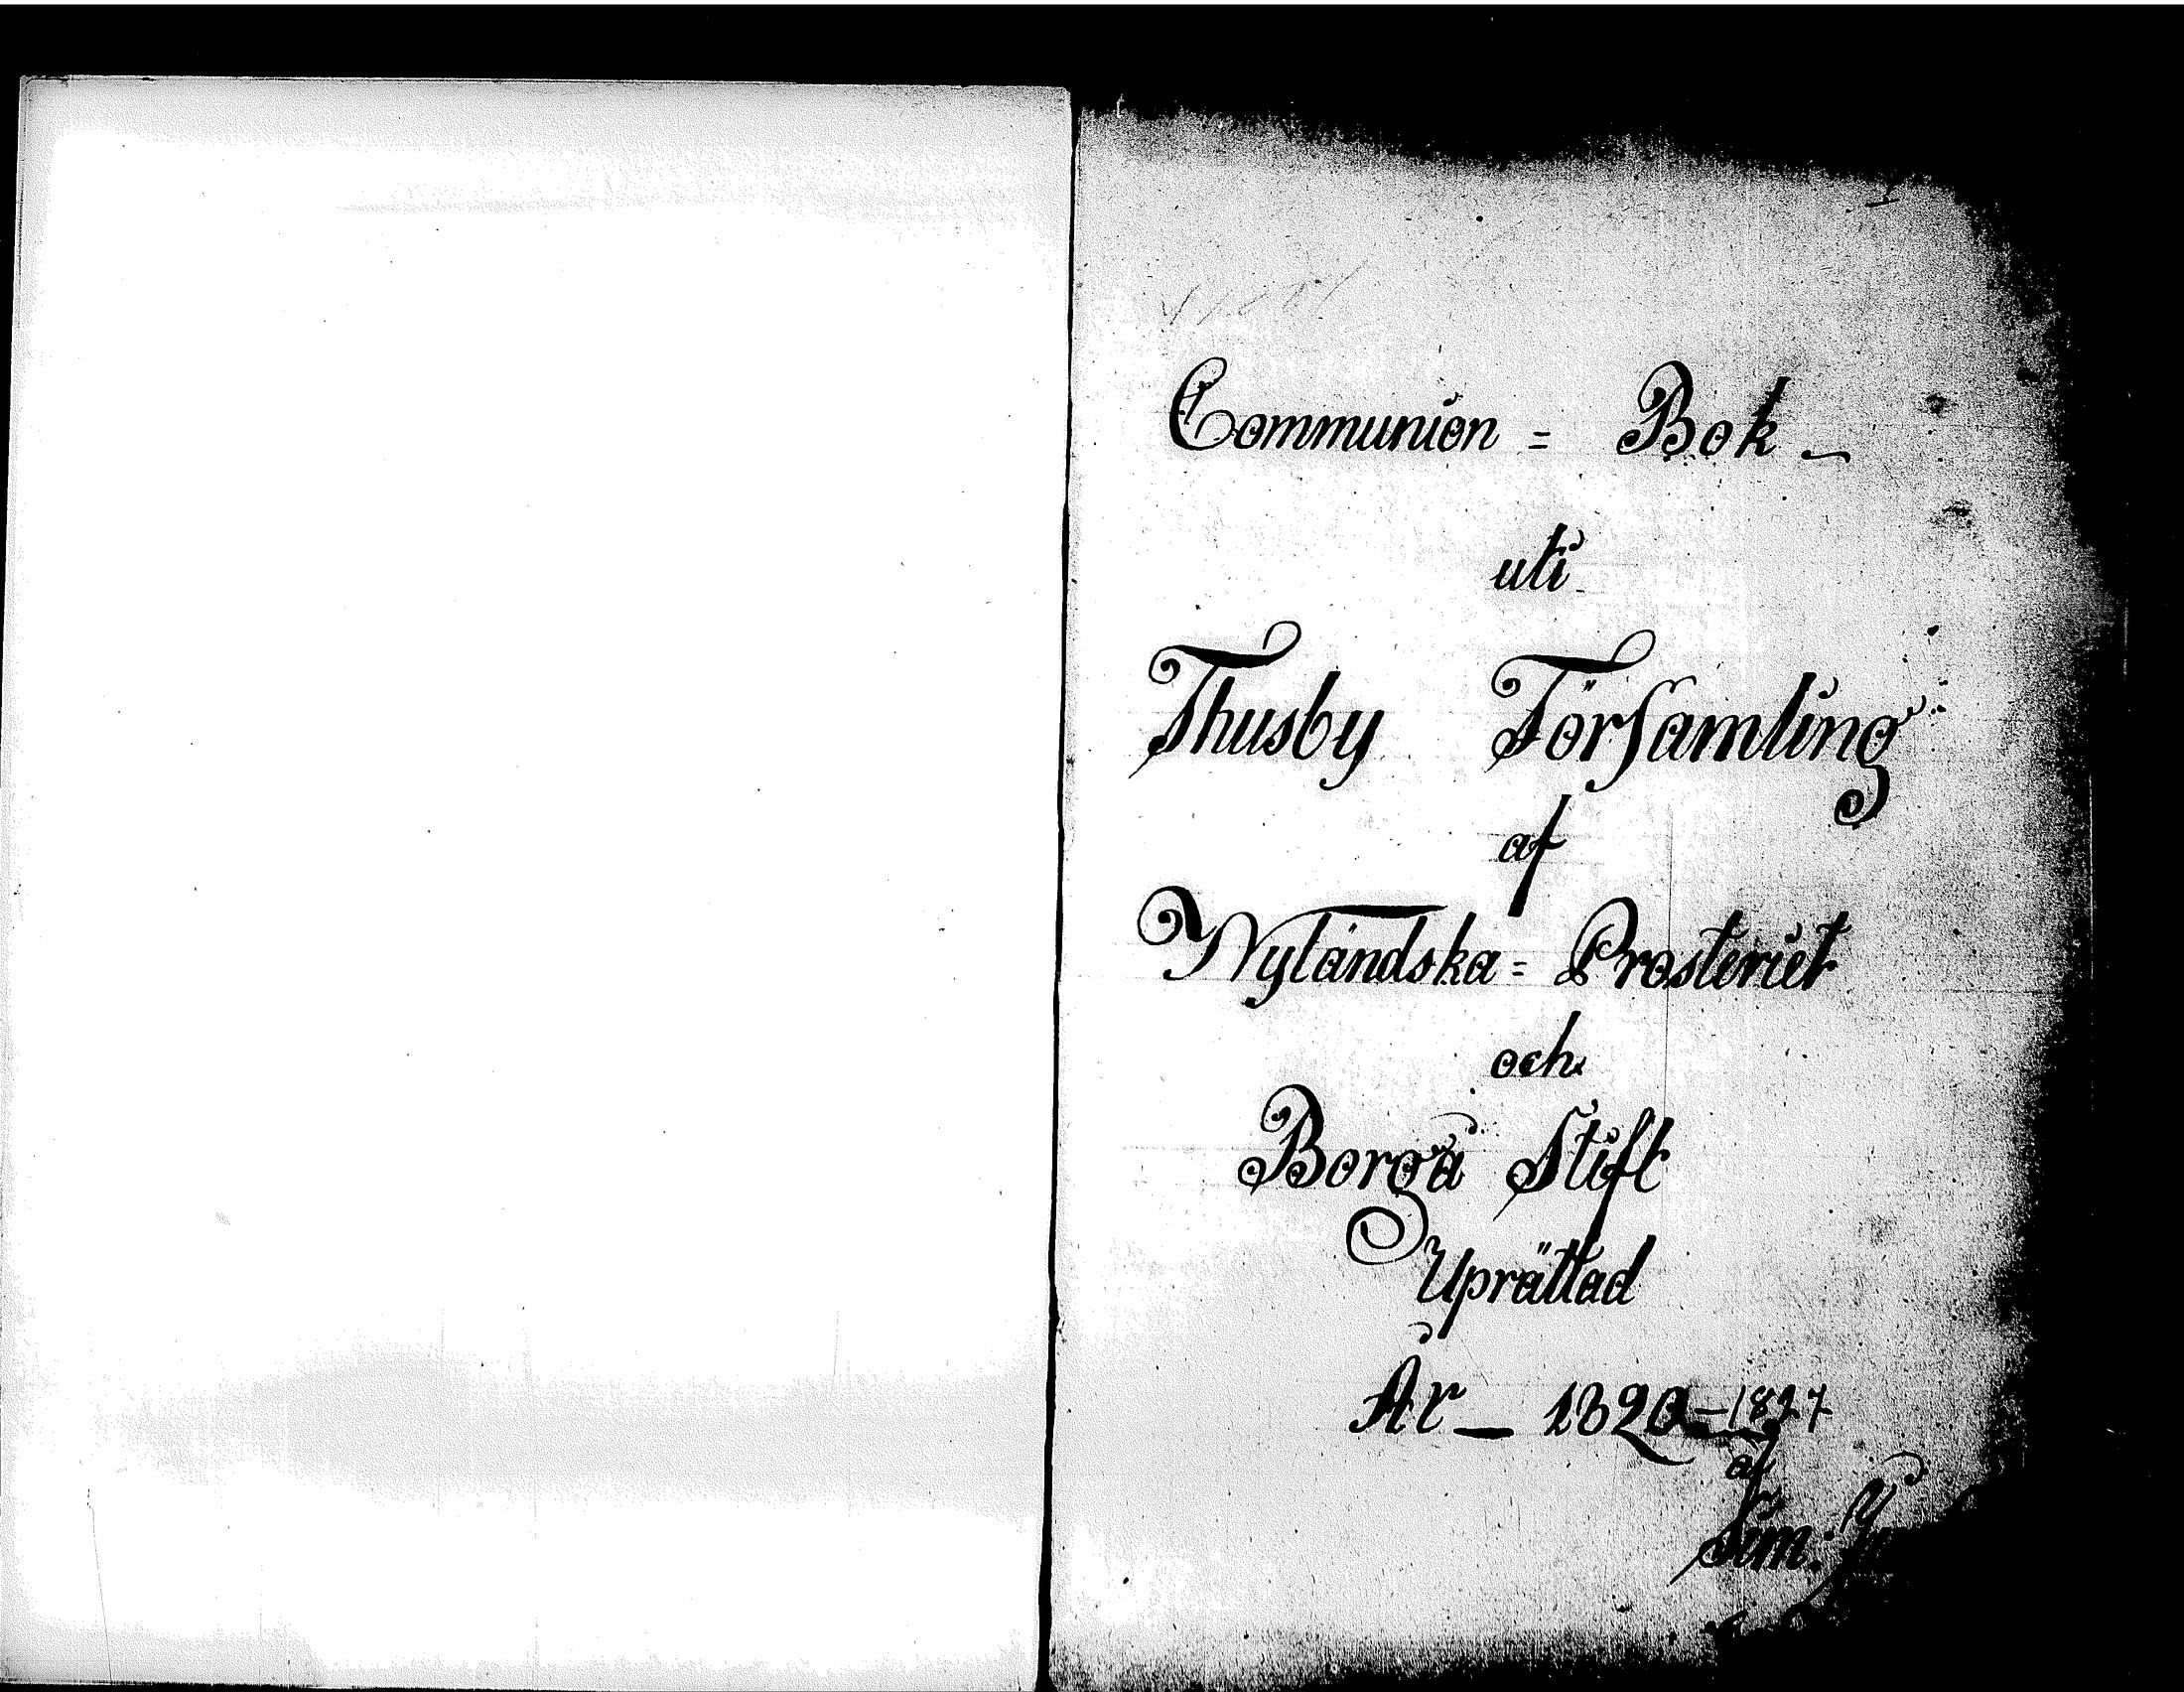 Communion = Bok –
uti
Thusby Församling
af
Nyländska = Prosteriet
och
Borgå Stift
Uprättad
År – 1820 – 1827
af
Sim: